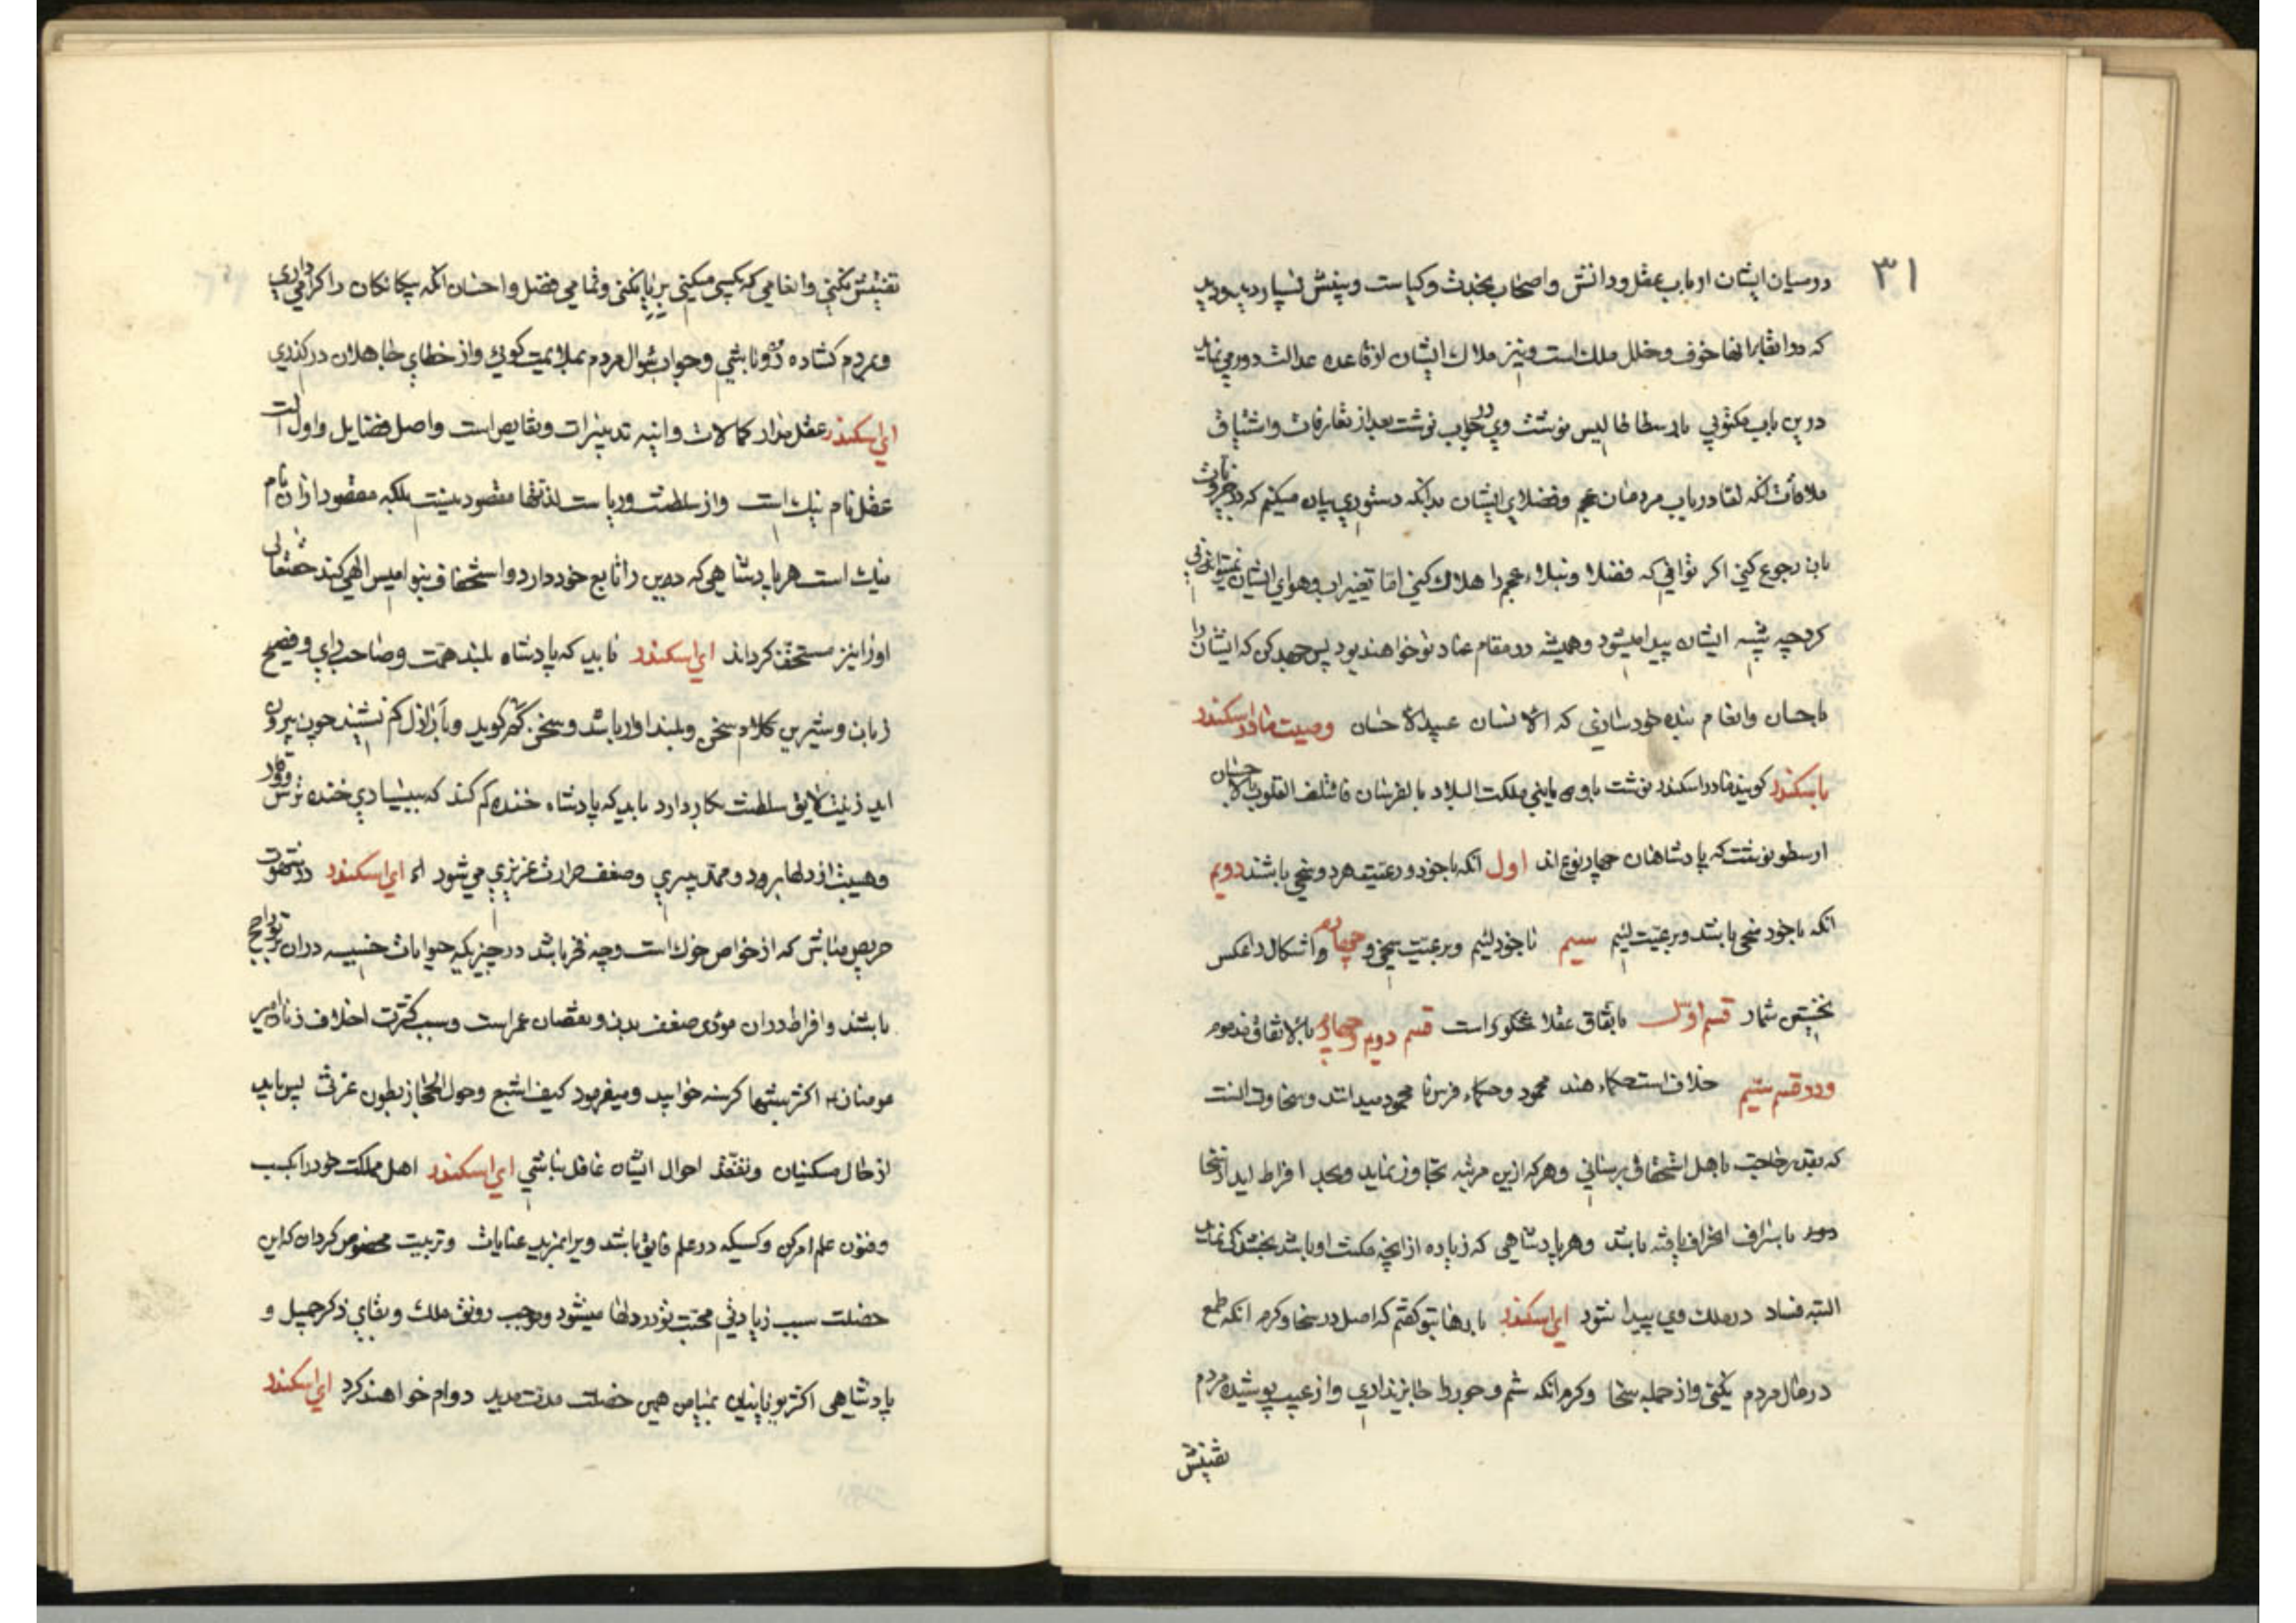 ۳۱
درمیان ایشان ارباب عقل و دانش و اصحاب نجدت و کیاست و بینش بسیار دید و دید
که در ابقا انها خوف و خلل ملک است و نیز هلاک ایشان از قاعده عدالت دور می نماید
درین باب مکتوبی بارسطاطالیس نوشت وی در جواب نوشت بعد از تعارفات و اشتیاق
ملاقات انکه لقا در باب مردمان عجم و فضلای ایشان بدانکه دستوری بیان میکنم که در جزویات
بان رجوع کنی اکر توانی که فضلا و نبلاء عجم را هلاک کنی اما تغییر اب و هوای ایشان نمیتوانی
کرد چه شبه ایشان پیدا میشود و همیشه در مقام عناد تو خواهند بود پس جهد کن که ایشان را
باحسان و انعام بنده خود سازی که الانسان عبید الاحسان وصیت مادر اسکندر
باسکندر کویند مادر اسکندر نوشت باو که یا بنی ملکت البلاد بالفرسان فاتلف القلوب بالاحسان
ارسطو نوشت که پادشاهان چهار نوع اند اول انکه با خود و رعیت هر دو سخی باشند دویم
انکه با خود سخی باشد و برعیت لئیم سیم با خود لئیم و برعیت سخی و چهارم و اشکال را عکس
نخستین شمار قسم اول باتفاق عقلا شکور است قسم دویم و چهارم بالاتفاق مذموم
و در قسم سیم خلاف است حکماء هند محمود و حکماء فرس نا محمود میدانند و سخاوت انست
که بقدر حاجت باهل استحقاق برسانی و هر که ازین مرتبه تجاوز نماید و بحد افراط اید از سخا
دور باسراف انحراف یافته باشد و هر پادشاهی که زیاده از انچه مکنت او باشد بخشندکی نماید
البته فساد در ملک وی پیدا شود ای اسکندر بارها بتو کفتم که اصل در سخا و کرم انکه طمع
در مال مردم نکنی و از جمله سخا و کرم انکه ستم و جور را جایز نداری و از عیب پوشیده مردم
تفتیش
تفتیش نکنی و انعامی که بکسی میکنی بر زبان نکنی و تمامی فضل و احسان انکه بیکانکان را کرامی داری
و بمردم کشاده رو باشی و جواب سوال مردم بملایمت کوئی و از خطای جاهلان درکذری
ای اسکندر عقل مدار کمالات و تدبیرات و نقایص است و اصل فضایل و اول الت
عقل نام نیک است و از سلطنت و ریاست لذتها مقصود نیست بلکه مقصود ازان نام
نیک است هر پادشاهی که دین را تابع خود دارد و استخفاف بنوامیس الهی کند حقتعالی
او را نیز مستخف کرداند ای اسکندر باید که پادشاه بلند همت و صاحب رای و فصیح
زبان و شیرین کلام و بلند اواز باشد و سخن کم کوید و با اراذل کم نشیند چون بیرون
اید زینت لایق سلطنت بکار دارد باید که پادشاه خنده کم کند که بسیاری خنده ترس و وقار
و هیبت از دلها برود و ممد پیری و ضعف حرارت غریزی می شود ای اسکندر در شهوت
حریص مباش که از خواص خوک است و چه فخر باشد در چیزیکه حیوانات خسیسه دران برتو راجح
باشند و افراط دران مودی ضعف بدن و نقصان عمر است و سبب کثرت اخلاف زنان امیر
مومنان اکثر شبها کرسنه خوابید و میفرمود کیف اشبع و حول الحجاز بطون غرثی پس باید
از حال مسکینان و تفقد احوال ایشان غافل نباشی ای اسکندر اهل مملکت خود را بکسب
و فنون علم امر کن و کسیکه در علم فایق باشد ویرا بمزید عنایات و تربیت مخصوص کردان که این
خصلت سبب زیادتی محبت تو در دلها میشود و موجب رونق ملک و بقای ذکر جمیل و
پادشاهی اکثر یونانیان بمیامن همین خصلت مدت مدید دوام خواهند کرد ای اسکندر